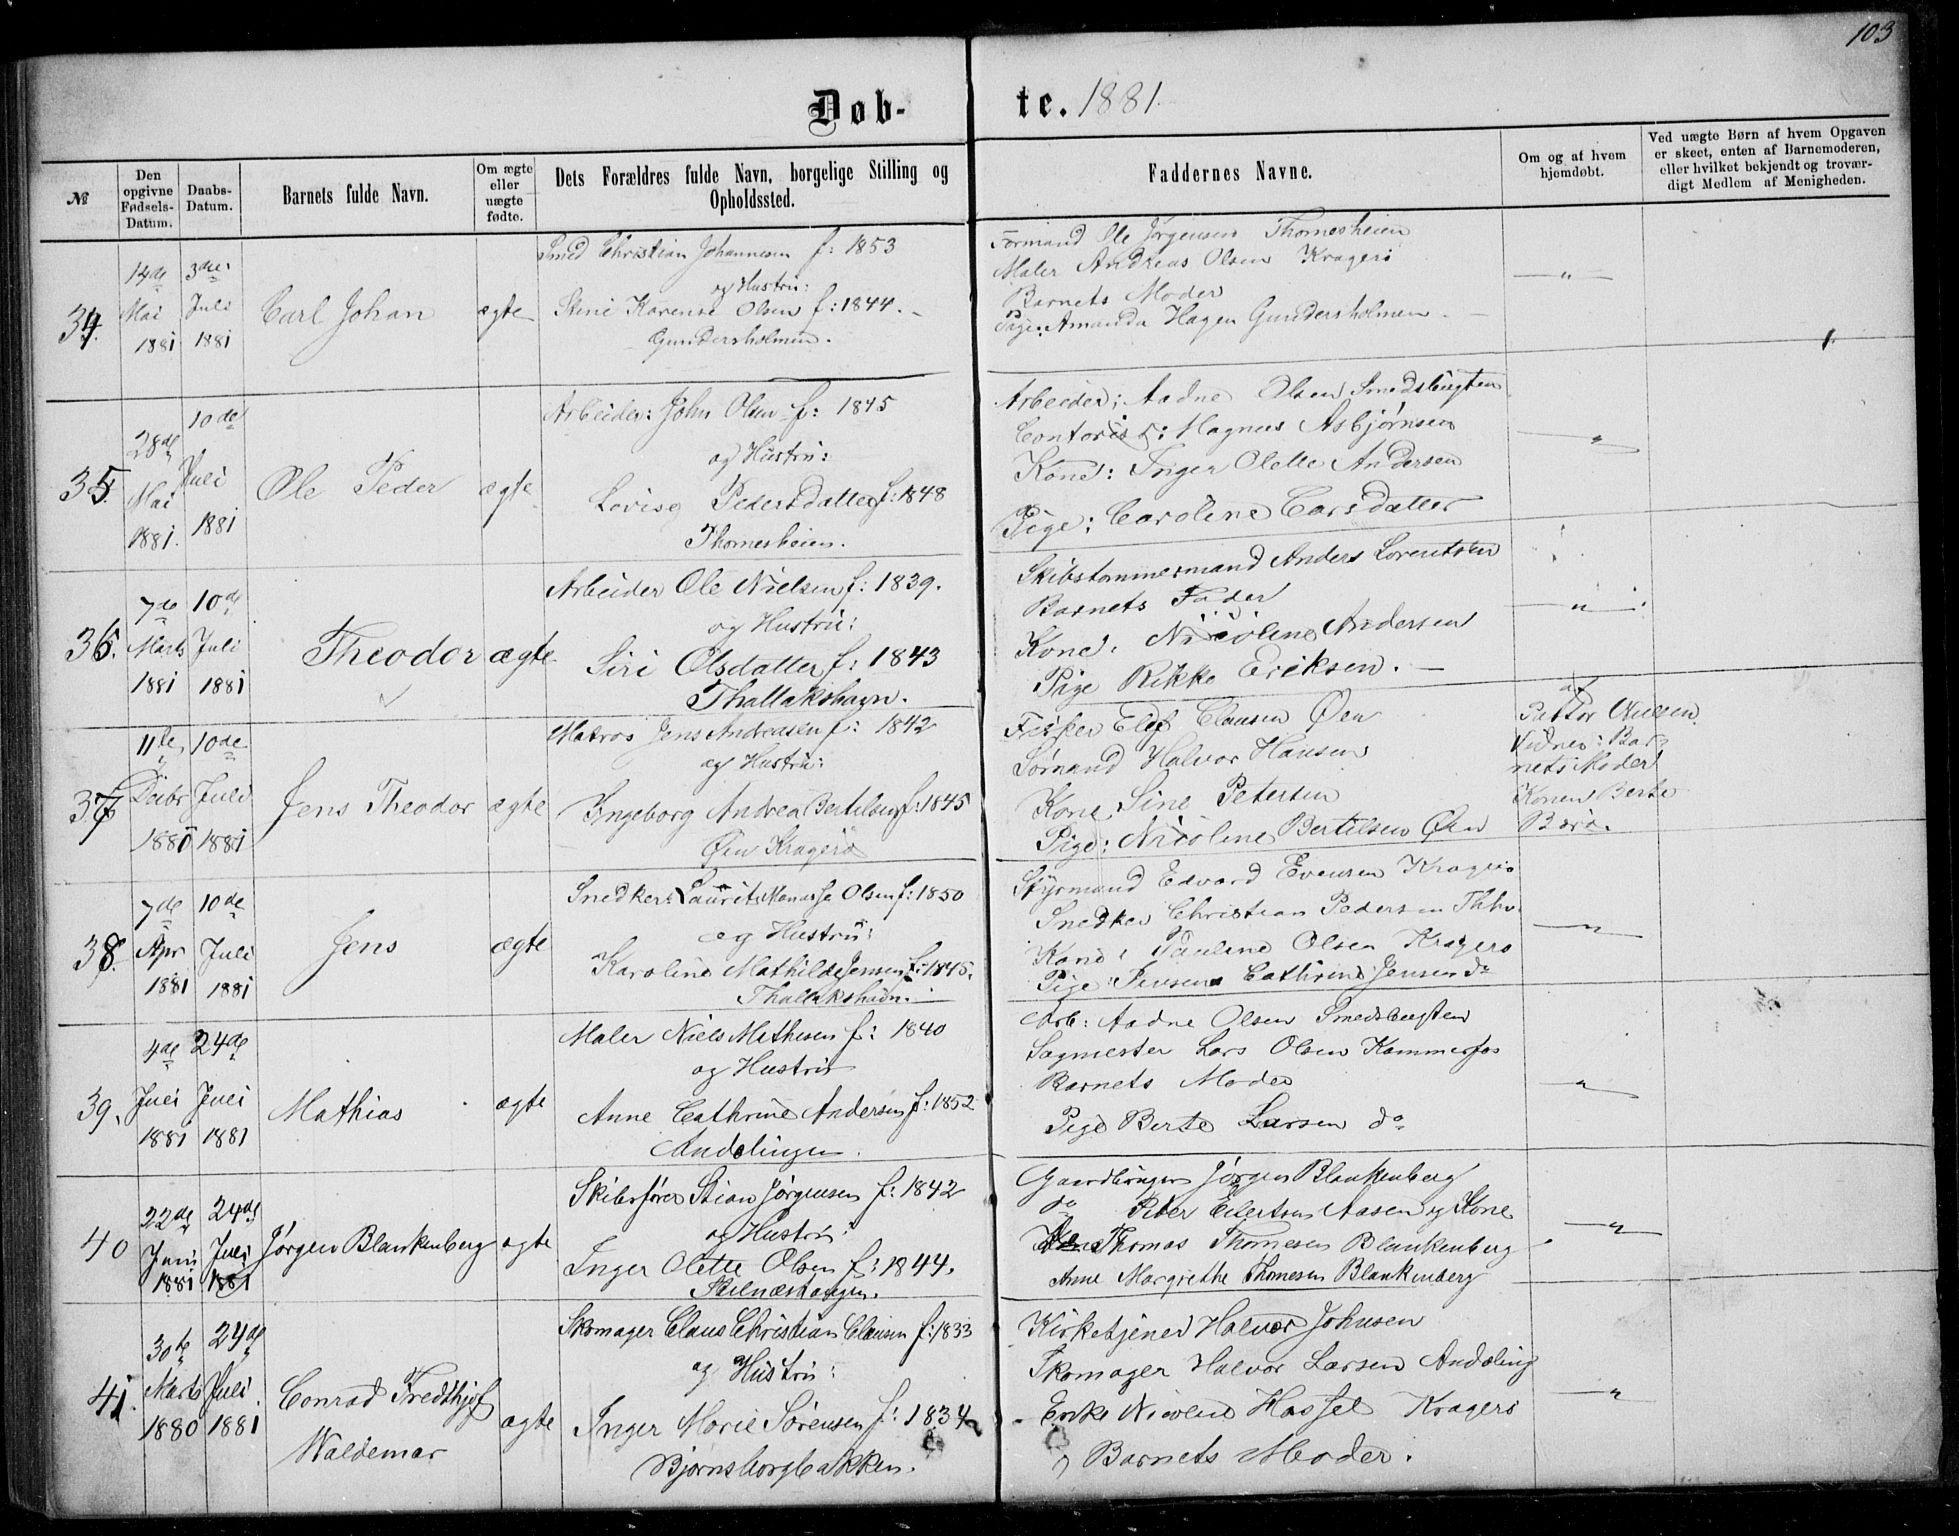 103
Døb- te. 1881.
№
Den opgivne Fødsels-Datum.
Daabs-Datum.
Barnets fulde Navn.
Om ægte eller uægte fødte.
Dets Forældres fulde Navn, borgelige Stilling og Opholdssted.
Faddernes Navne.
Om og af hvem hjemdøbt.
Ved uægte Børn af hvem Opgaven er skeet, enten af Barnemoderen, eller hvilket bekjendt og troværdigt Medlem af Menigheden.
34.
14de Mai 1881
3die Juli 1881
Carl Johan
ægte
Smed Christian Johannesen f: 1853
og Hustru:
Stine Karense Olsen f: 1844.
Gundersholmen.
Formand Ole Jørgensen Thomesheien
Maler Andreas Olsen Kragerö
Barnets Moder
Pige: Amanda Hagen Gundersholmen
—"—
35.
28de Mai 1881.
10de Juli 1881
Ole Peder
ægte
Arbeider: John Olsen f: 1845
og Hustru:
Lovise Pedersdatter f: 1848
Thomesheien.
Arbeider: Aadne Olsen Smedsbugten
Contorist: Magnus Asbjørnsen
Kone: Inger Olette Andersen
Pige: Caroline Larsdatter
—"—
36.
7de Marts 1881
10de Juli 1881
Theodor
ægte
Arbeider Ole Nielsen f: 1839.
og Hustru:
Siri Olsdatter f: 1843
Thallakshavn.
Skibstømmermand Anders Lorentsen
Barnets Fader
Kone: Nicoline Andersen
Pige Rikke Eriksen.
—"—
37
11te Decbr 1880
10de Juli 1881
Jens Theodor
ægte
Matros Jens Andreasen f: 1842
og Hustru:
Ingeborg Andrea Bertilsen f: 1845
Øen Kragerö
Fisker Elef Clausen Øen
Sømand Halvor Hansen
Kone Sine Petersen
Pige: Nicoline Bertilsen Øen
af
Pastor Nielsen
Vidner: Bar
nets Moder
Konen Berte
Barø.
38.
7de Apr 1881
10de Juli 1881
Jens
ægte
Snedker Laurits Manasse Olsen f: 1850
og Hustru:
Karoline Mathilde Jensen f: 1845.
Thallakshavn.
Styrmand Edvard Evensen Kragerö
Snedker Christian Pedersen Thhv.
Kone: Pauline Olsen Kragerö
Cathrine Jensen do
—"—
39.
4de Juli 1881
24de Juli 1881
Mathias
ægte
Maler Niels Mathesen f: 1840
og Hustru
Anne Cathrine Andersen f: 1852
Andølingen.
Arb: Aadne Olsen Smedsbugten
Sagmester Lars Olsen Kammerfos
Barnets Moder
Pige Berte Larsen do
—"—
40
22de Juni 1881
24de Juli 1881
Jørgen Blankenberg
ægte
Skibsfører Stian Jørgensen f: 1842
og Hustru:
Inger Olette Olsen f: 1844.
Gaardbruger Jørgen Blankenberg
do Peter Eilertsen Aasen og Kone
Thomas Thomesen Blankenberg
Anne Margrethe Thomesen Blankenberg
—"—
41.
30te Marts 1880
24de Juli 1881
Conrad Fredthjof Waldemar
ægte
Skomager Claus Christian Clausen f: 1833
og Hustru:
Inger Marie Sørensen f: 1834
Bjørnsborgbakken.
Kirketjener Halvor Johnsen
Skomager Halvor Larsen Andøling
Enke Nicoline Hassel Kragerö
Barnets Moder.
—"—